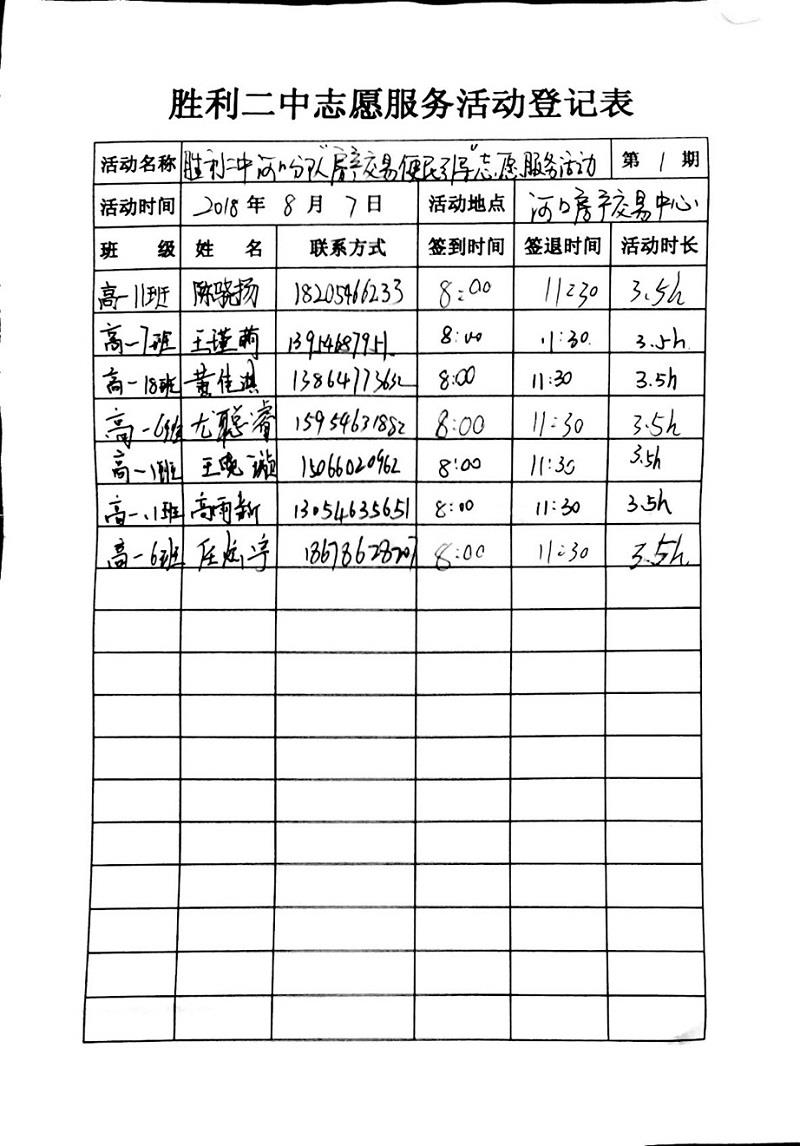 胜利二中志愿服务活动登记表
活动名称 胜利二中河口分队“房产交易便民引导”志愿服务活动 第 1 期
活动时间 2018 年 8 月 7 日 活动地点 河口房产交易中心
班 级 姓 名 联系方式 签到时间 签退时间 活动时长
高一11班 陈晓扬 18205466233 8:00 11:30 3.5h
高一7班 王瑾萌 13954687951 8:00 11:30 3.5h
高一18班 黄佳淇 13864773652 8:00 11:30 3.5h
高一6班 尤聪睿 15954631882 8:00 11:30 3.5h
高一1班 王晓璇 15066020962 8:00 11:30 3.5h
高一11班 高雨新 13054635651 8:00 11:30 3.5h
高一6班 任 宇 18678628207 8:00 11:30 3.5h